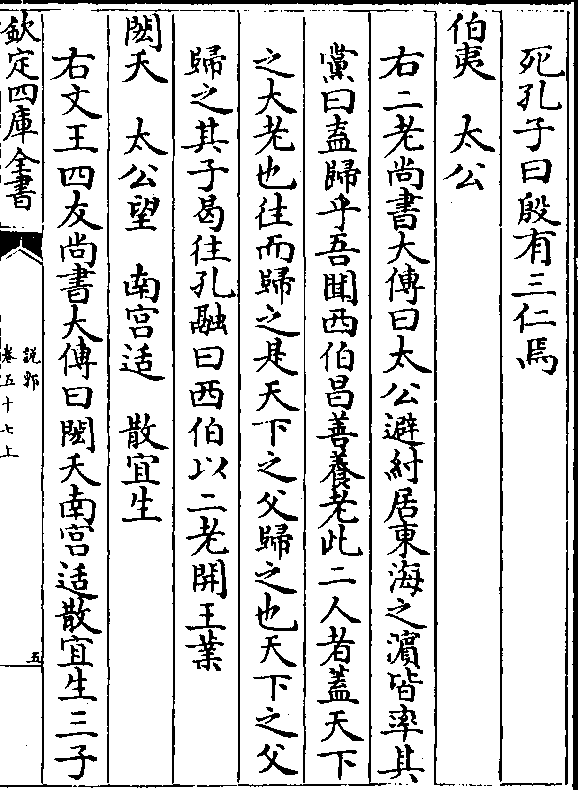 死孔子曰殷有三仁焉
伯夷　太公
右二老尚書大傳曰太公避紂居東海之濵皆率其
黨曰盍歸乎吾聞西伯昌善養老此二人者蓋天下
之大老也往而歸之是天下之父歸之也天下之父
歸之其子曷往孔融曰西伯以二老開王業
閎夭　太公望　南宫适　散宜生
右文王四友尚書大傳曰閎夭南宫适散宜生三子
欽定四庫全書
說郛
卷五十七上
五